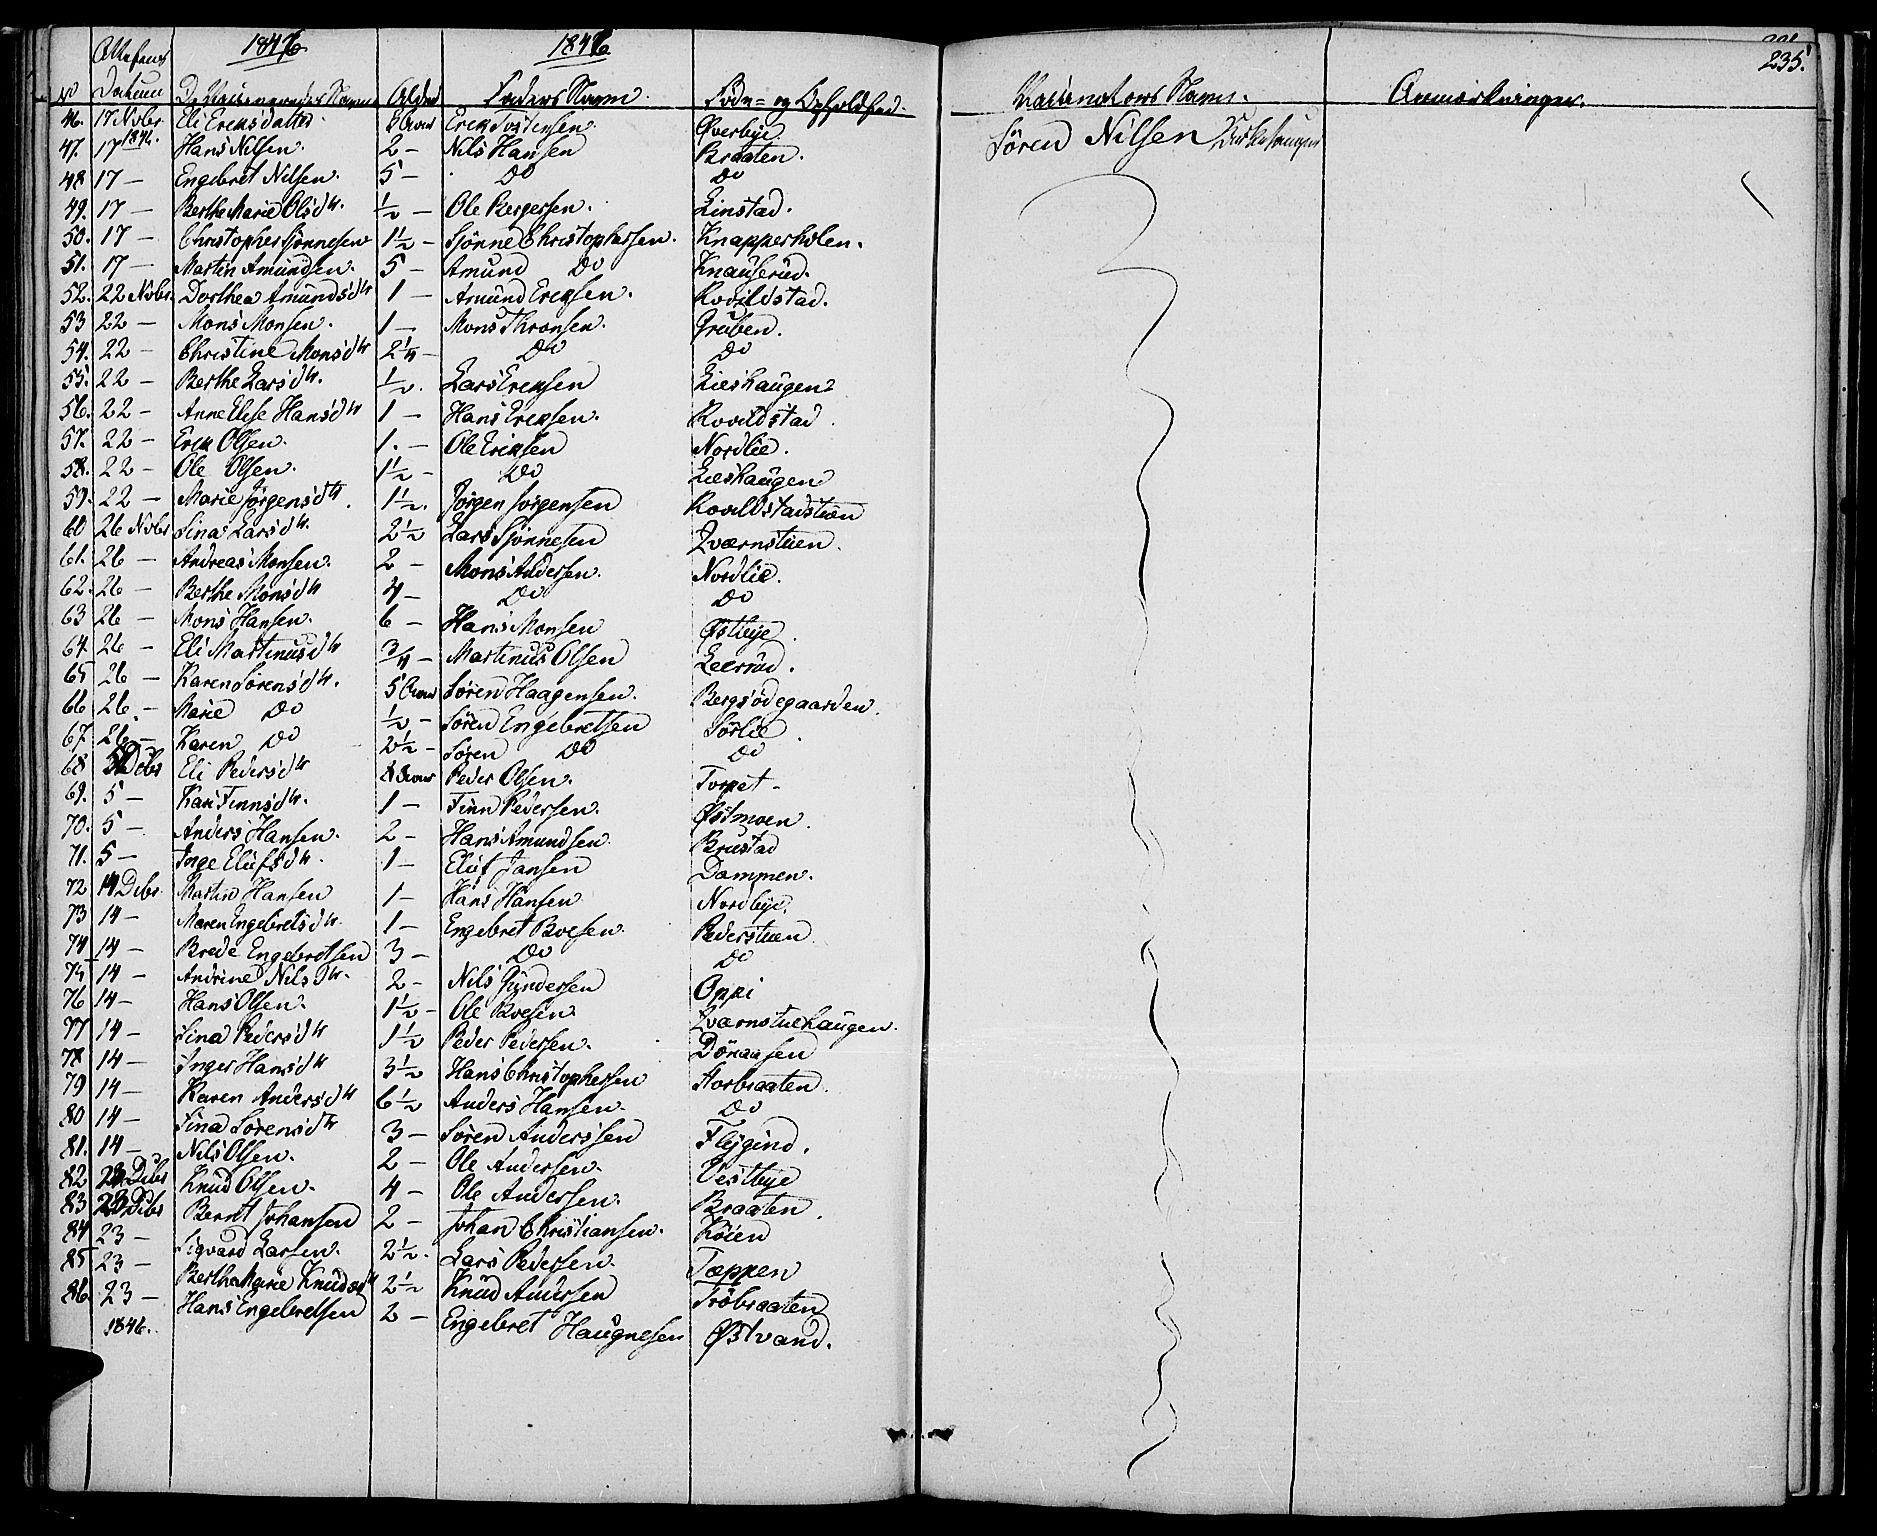 1846. 1846 235.
No Attestens Datum De Vaccineredes Navne Alder Faders Navn. Føde- og Opholdsted. Vaccinators Navn. Anmærkninger.
46. 17 Novbr 1846. Eli Eriksdatter Erik Tostensen Øverbye Søren Nilsen Kirkesanger
47. 17 Hans Nilsen. 2 - Nils Hansen Braaten.
48 17 - Engebret Nilsen. 5 - Do Do
49. 17 - Berthe Marie Olsdtr. 1/2 - Ole Bergersen. Linstad.
50. 17 - Christopher Sjønnesen 1 1/2 - Sjønne Christophersen. Knapperholen.
51. 17 - Martin Amundsen. 5 - Amund Do Knauserud.
52. 22 Novbr. Dorthea Amundsdtr 1 - Amund Eriksen. Rovildstad.
53 22 - Mons Monsen. 1 - Mons Thronsen. Gruben.
54. 22 - Christine Monsdtr 2 1/4 - Do Do
55. 22 - Berthe Larsdtr. 1/2. Lars Eriksen Lieshaugen
56. 22 - Anne Elise Hansdtr 1 - Hans Eriksen. Rovildstad.
57. 22 - Erik Olsen. 1. - Ole Eriksen Nordlie.
58. 22 - Ole Olsen. 1 1/2 - Do Lieshaugen
59. 22 - Marie Jørgensdtr. 1 1/2. Jørgen Jørgensen Rovildstadstuen
60 26 Novbr Sina Larsdtr. 2 1/2 Lars Sjønnesen Qværnstuen.
61. 26 - Andreas Monsen. 2 - Mons Andersen. Nordlie.
62. 26 - Berthe Monsdtr 4 - Do Do
63 26 - Mons Hansen. 6 - Hans Monsen Østbye.
64. 26 - Eli Martinusdtr 3/4 - Martinus Olsen Leerud.
65 26 - Karen Sørensdtr. 5 Søren Haagensen. Bergsødegaarden.
66 26. - Marie Do 1/2 - Søren Engebretsen Sørlie.
67. 26 - Karen Do 2 1/2 - Søren Do Do
68 5 Debr Eli Pedersdtr Peder Olsen. Torpet -
69. 5 - Kari Finnsdtr. 1 - Finn Pedersen. Østmoen.
70. 5 - Anders Hansen. 2 - Hans Amundsen. Brustad
71. 5 - Inge Elufsdtr. 1 - Eluf Jansen Dammen.
72 14 Debr. Martin Hansen 1 - Hans Hansen Nordbye.
73 14 - Maren Engebretsdtr. 1 - Engebret Boesen. Pederstuen
74 14 - Brede Engebretsen 3 - Do Do
75 14 - Andrine Nilsdtr. 2 - Nils Gundersen Oppi
76 14 - Hans Olsen. 1 1/2 - Ole Boesen Qværnstuehaugen.
77 14 - Sina Pedersdtr 1 1/2 Peder Pedersen. Dønaasen
78 14 - Inger Hansdtr 3 1/2 Hans Christophersen Storbraaten.
79 14 - Karen Andersdtr 6 1/2 Anders Hansen. Do
80 14 - Sina Sørensdtr 3 - Søren Anderssen Flesgind.
81. 14 - Nils Olsen. 2 - Ole Andersen. Vestbye
82 23 Debr Knud Olsen. 4 - Ole Andersen. Braaten.
83 23 Debr Bernt Johansen 2 - Johan Christiansen. Køien
84 23 - Sigvard Larsen. 2 1/2. Lars Pedersen. Tæppen
85 23 - Berthe Marie Knudsdtr 2 1/2 Knud Andersen Trøbraaten
86. 23 - Hans Engebretsen 2 - Engebret Haugnesen Østvand.
1846.